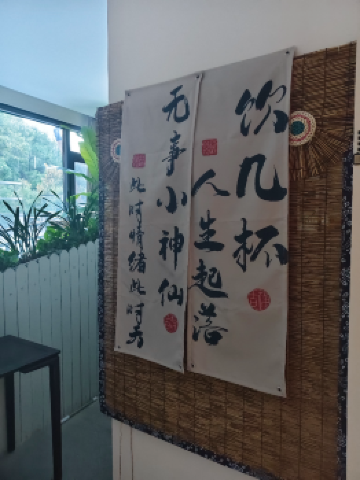 饮几杯
人生起落
无事小神仙
此时情绪此时天